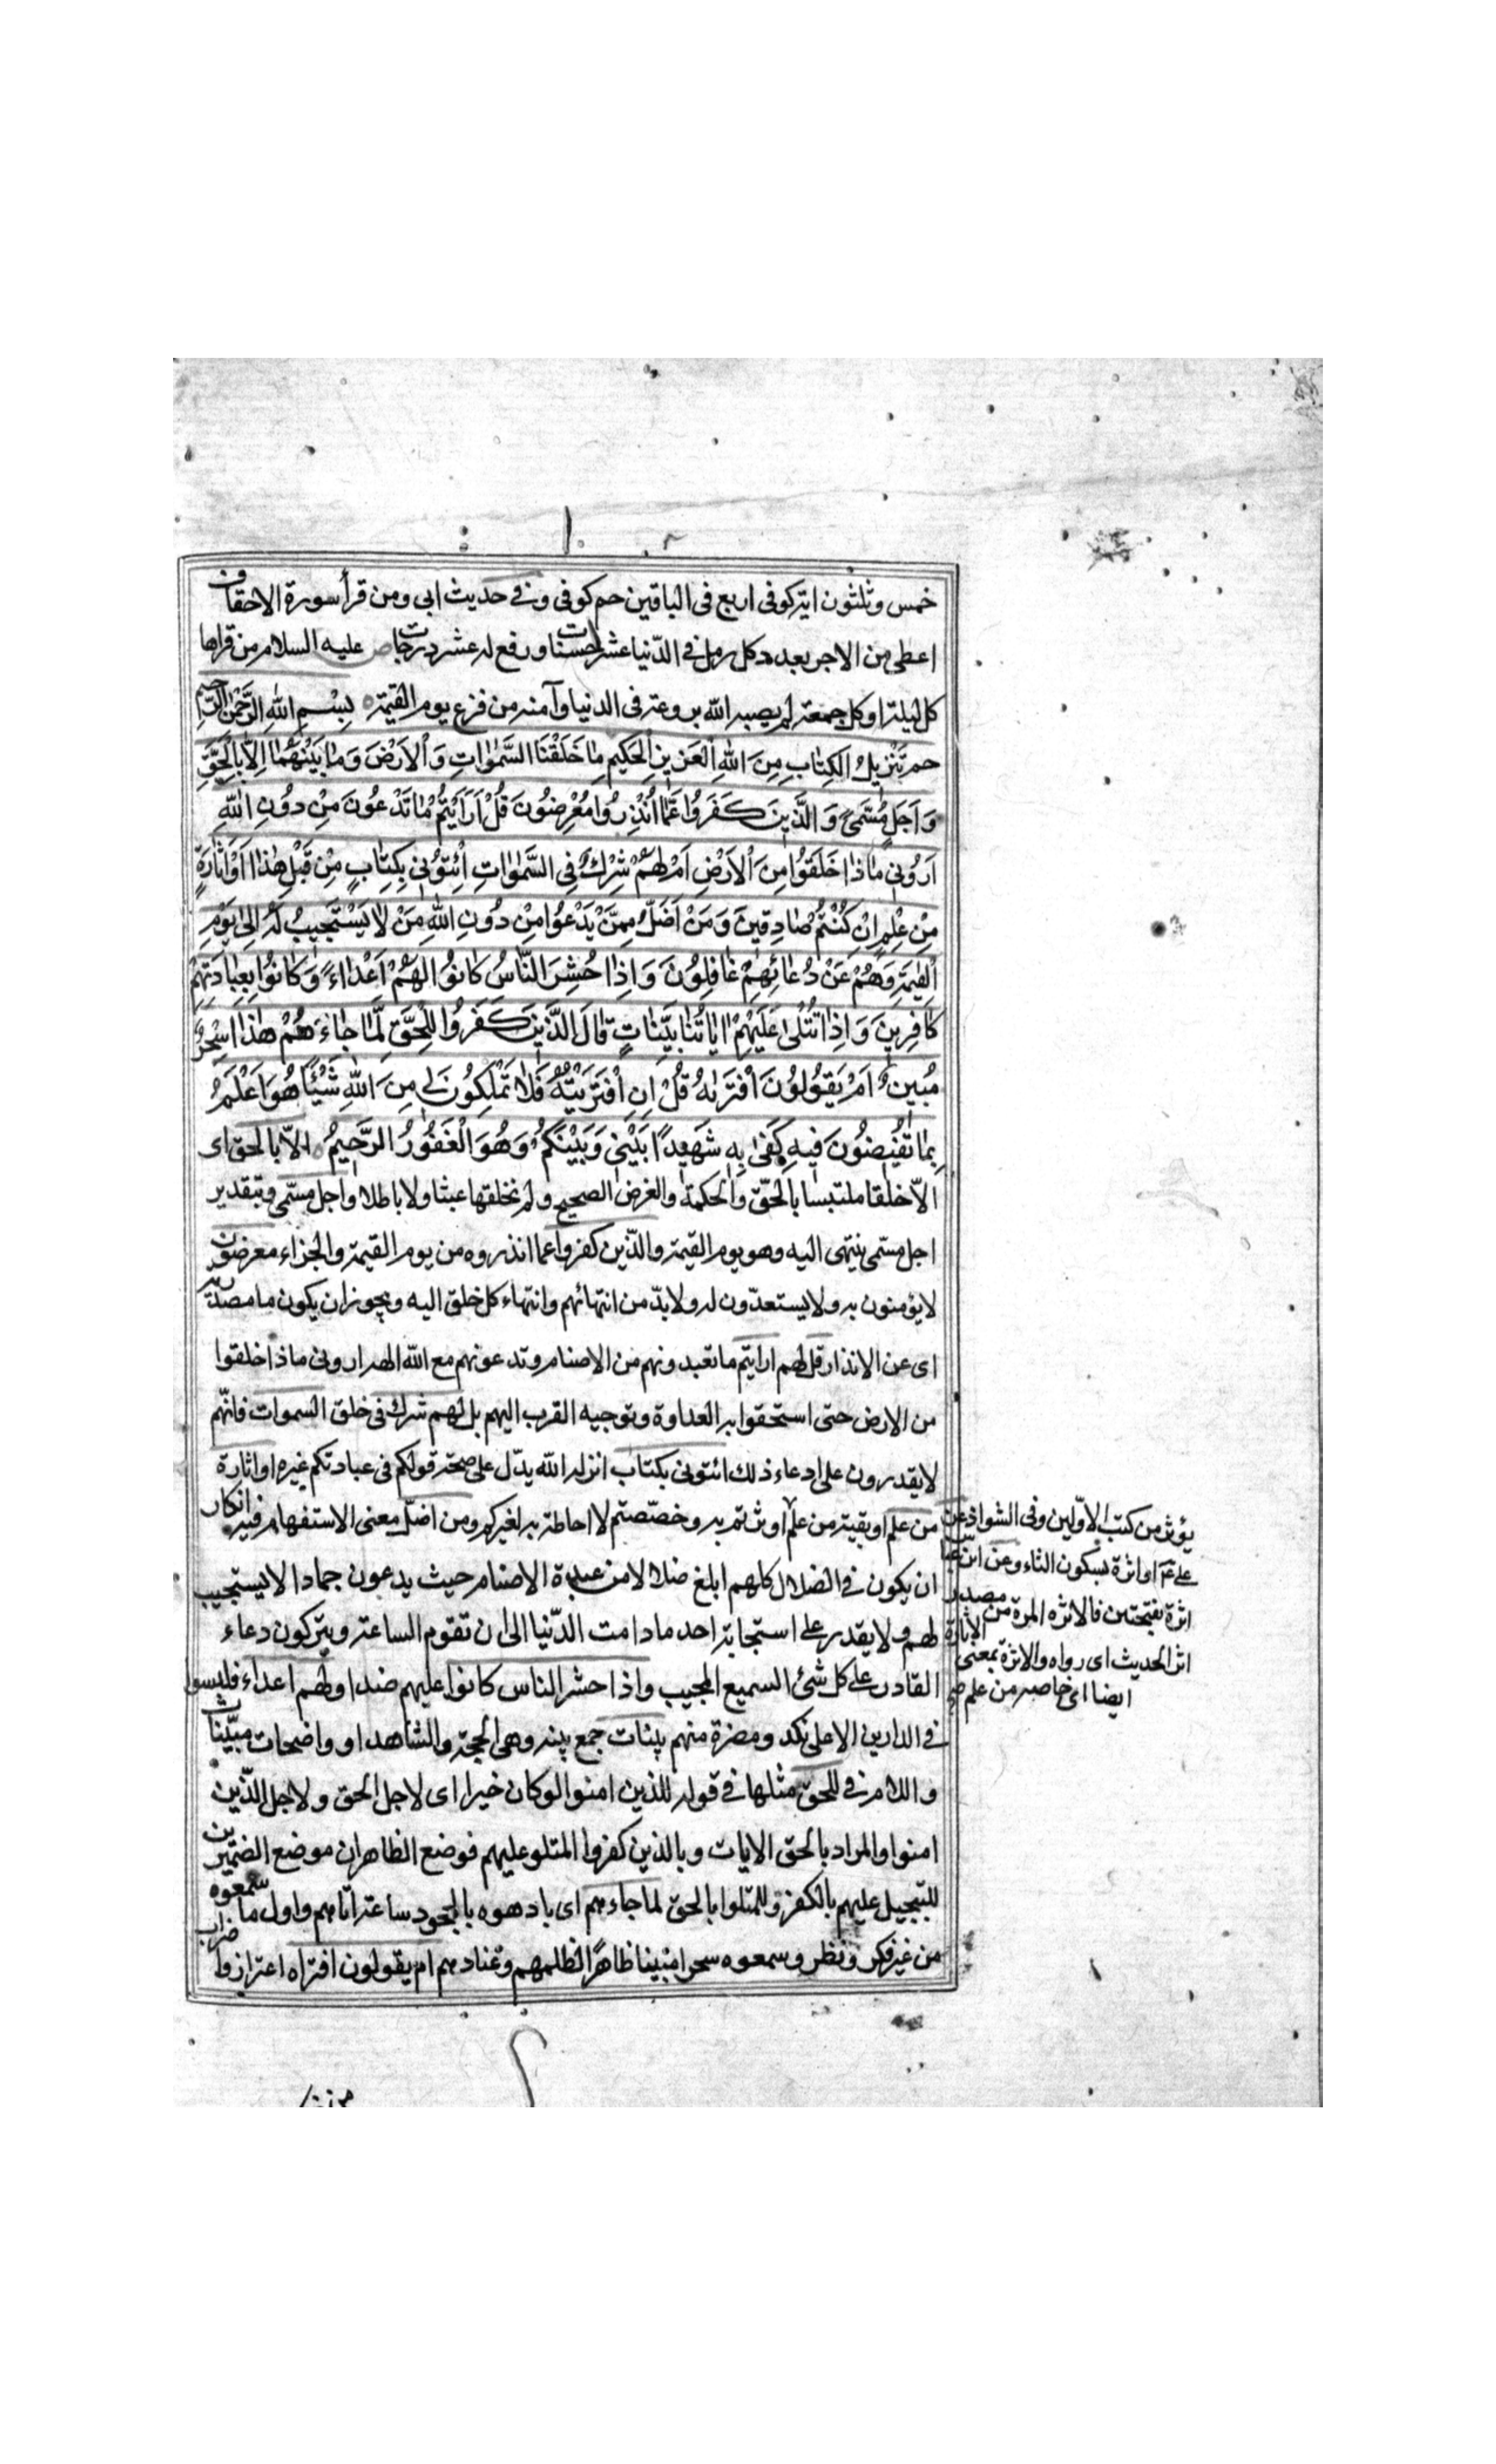 خمس وثلثون ایة كوفى اربع فى الباقين حم كوفى وفى حديث ابى ومن قرأ سورة الاحقاف
اعطى من الاجر بعدد كل رمل فى الدّنيا عشر حسنات ورفع له عشر درجات ص عليه السلام من قراها
كل ليلة او كل جمعة لم يصبه الله بروعة فى الدنيا وآمنه من فزع يوم القيمة بِسْمِ اللهِ الرَّحْمٰنِ الرَّحيمِ
حم تَنْزيلُ الكِتٰابِ مِنَ اللهِ الْعَزيزِ الْحَكيمِ مٰا خَلَقْنَا السَّمٰوٰاتِ وَالْاَرْضَ وَمٰا بَيْنَهُمٰا اِلّٰا بِالْحَقِّ
وَاَجَلٍ مُسَمىًّ وَالَّذينَ كَفَرُوا عَمّٰا اُنْذِرُوا مُعْرِضُونَ قُلْ اَرَاَيْتُمْ مٰا تَدْعُونَ مِنْ دُونِ اللهِ
اَرُونى مٰاذٰا خَلَقُوا مِنَ الْاَرْضِ اَمْ لَهُمْ شِرْكٌ فِى السَّمٰوٰاتِ اِئْتُونى بِكِتٰابٍ مِنْ قَبْلِ هٰذٰا اَوْ اَثٰارَةٍ
مِنْ عِلْمٍ اِنْ كُنْتُمْ صٰادِقينَ وَمَنْ اَضَلُّ مِمَّنْ يَدْعُوا مِنْ دُونِ اللهِ مَنْ لٰا يَسْتَجيبُ لَهُ اِلىٰ يَوْمِ
الْقِيٰمَةِ وَهُمْ عَنْ دُعٰائِهِمْ غٰافِلُونَ وَاِذٰا حُشِرَ النّٰاسُ كٰانُوا لَهُمْ اَعْدٰاءً وَكٰانُوا بِعِبٰادَتِهِمْ
كٰافِرينَ وَاِذٰا تُتْلىٰ عَلَيْهِمْ اٰيٰاتُنٰا بَيِّنٰاتٍ قٰالَ الَّذينَ كَفَرُوا لِلْحَقِّ لَمّٰا جٰاءَهُمْ هٰذٰا سِحْرٌ
مُبينٌ اَمْ يَقُولُونَ افْتَرٰىهُ قُلْ اِنِ افْتَرَيْتُهُ فَلٰا تَمْلِكُونَ لى مِنَ اللهِ شَيْئًا هُوَ اَعْلَمُ
بِمٰا تُفيضُونَ فيهِ كَفىٰ بِهِ شَهيدًا بَيْنى وَبَيْنَكُمْ وَهُوَ الْغَفُورُ الرَّحيمُ الّا بالحق اى
الّا خلقا ملتبسا بالحقّ والحكمة والغرض الصحيح ولم نخلقها عبثا ولا باطلا واجل مسمّى وبتقدير
اجل مسمّى ينتهى اليه وهو يوم القيمة والذّين كفروا عما انذروه من يوم القيمة والجزاء معرضون
لا يؤمنون به ولا يستعدّون له ولا بدّ من انتهائهم وانتهاء كل خلق اليه ويجوز ان يكون ما مصدرية
اى عن الانذار قل لهم ارايتم ما تعبدونهم من الاصنام وتدعونهم مع الله الهه ارونى ماذا خلقوا
من الارض حتى استحقوا به العداوة وتوجيه القرب اليهم بل لهم شرك فى خلق السموات فانّهم
لا يقدرون على ادعاء ذلك ائتونى بكتاب انزله الله يدّل على صحة قولكم فى عبادتكم غيره او اثارة
من علم او بقية من علم اوثرتم به وخصّصتم لا احاطة به لغيركم ومن اضلّ معنى الاستفهام فيه انكار
ان يكون فى الضلال كلهم ابلغ ضلالا من عبدة الاصنام حيث يدعون جمادا لا يستجيب
لهم ولا يقدر على استجابة احد ما دامت الدّنيا الى ان تقوم الساعة ويتركون دعاء
القادر على كل شئ السميع المجيب واذا حشر الناس كانوا عليهم ضدا ولهم اعداء فليسوا
فى الدارين الا على نكد ومضرة منهم بينات جمع بينه وهى الحجة والشاهد او واضحات مبيّنات
واللام فى للحق مثلها فى قوله للذين امنوا لو كان خيرا اى لاجل الحق ولاجل الذّين
امنوا والمراد بالحق الايات وبالذين كفروا المتلو عليهم فوضع الظاهران موضع الضميرين
للتسجيل عليهم بالكفر وللمتلوا بالحق لما جاءهم اى بادهوه بالجحود ساعة اتاهم واول ما سمعوه
من غير فكر ونظر وسمعوه سحرا مبينا ظاهرًا لظلمهم وعنادهم ام يقولون افتراه اعتزازوا ضراب
يؤثر من كتب الاوّلين وفى الشواذ عن
على ع او اثرة بسكون الثاء وعن ابن عبّاس
اثرة بفتحتين فالاثره المرة من مصدر
اثر الحديث اى رواه والاثرة بمعنى الاثارة
ايضا اى خاصه من علم